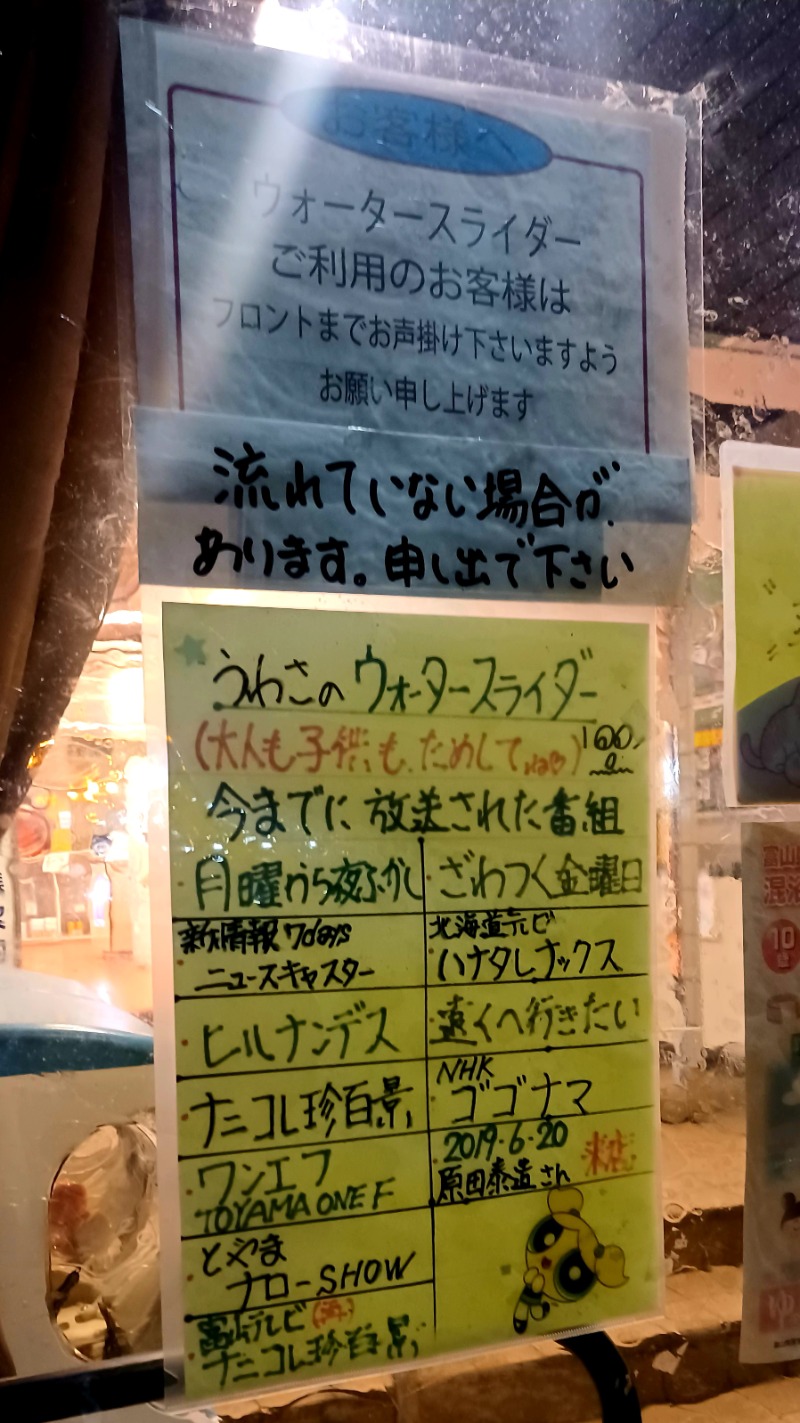 お客様へ
ウォータースライダー
ご利用のお客様は
フロントまでお声掛け下さいますよう
お願い申し上げます
流れていない場合が
あります。申し出で下さい
うわさのウォータースライダー
(大人も子供も、ためしてね♡)
今までに放送された番組
月曜から夜ふかし
ざわつく金曜日
新情報7days
ニュースキャスター
北海道テレビ
ハナタレナックス
ヒルナンデス
遠くへ行きたい
ナニコレ珍百景
NHK
ゴゴナマ
ワンエフ
TOYAMA ONE F
2019・6・20
原田泰造さん
来店
とやま
ナローSHOW
富山テレビ
ナニコレ珍百景
富山
混浴
10
ゆ